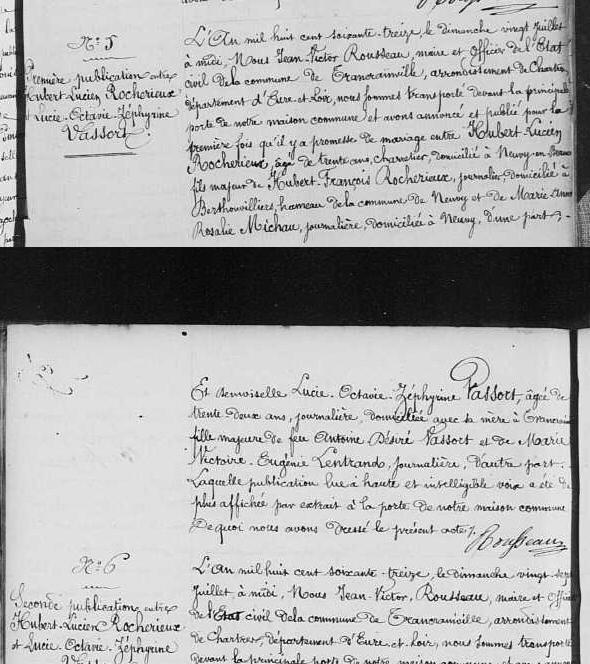 N° 5
Première publication entre
Hubert-Lucien Rocherieux
Lucie-Octavie-Zéphyrine
Vassort
L'An mil huit cent soixante-treize, le dimanche vingt Juillet
à midi, Nous Jean-Victor Rousseau, maire et Officier de l'Etat
civil de la commune de Trancrainville, arrondissement de Chartres
département d'Eure et Loir, nous sommes transporté devant la principale
porte de notre maison commune et avons annoncé et publié pour la
première fois qu'il y a promesse de mariage entre Hubert Lucien
Rocherieux, âgé de trente ans, charretier, domicilié à Neuvy-en-Beauce
fils majeur de Hubert-François Rocherieux, journalier, domicilié à
Berthouvilliers, hameau de la commune de Neuvy et de Marie Anne
Rosalie Michau, journalière, domiciliée à Neuvy, d'une part ;-
Et demoiselle Lucie-Octavie-Zéphyrine Vassort, âgée de
trente deux ans, journalière, domiciliée avec sa mère à
fille majeure de feu Antoine Désiré Vassort et de Marie
Victoire-Eugénie Lentrand, journalière, d'autre part.
Laquelle publication lue à haute et intelligible voix a été de
plus affichée par extrait à la porte de notre maison commune
De quoi nous avons dressé le présent acte /.
Rousseau
N° 6
Seconde publication, entre
Hubert-Lucien Rocherieux
et Lucie-Octavie-Zéphyrine
Vassort
L'An mil huit cent soixante-treize, le dimanche vingt-sept
Juillet, à midi, Nous Jean-Victor, Rousseau, maire et Officier
de l'Etat civil de la commune de Trancrainville, arrondissement
de Chartres, département d'Eure-et-Loir, nous sommes transporté
devant la principale porte de notre maison commune et avons